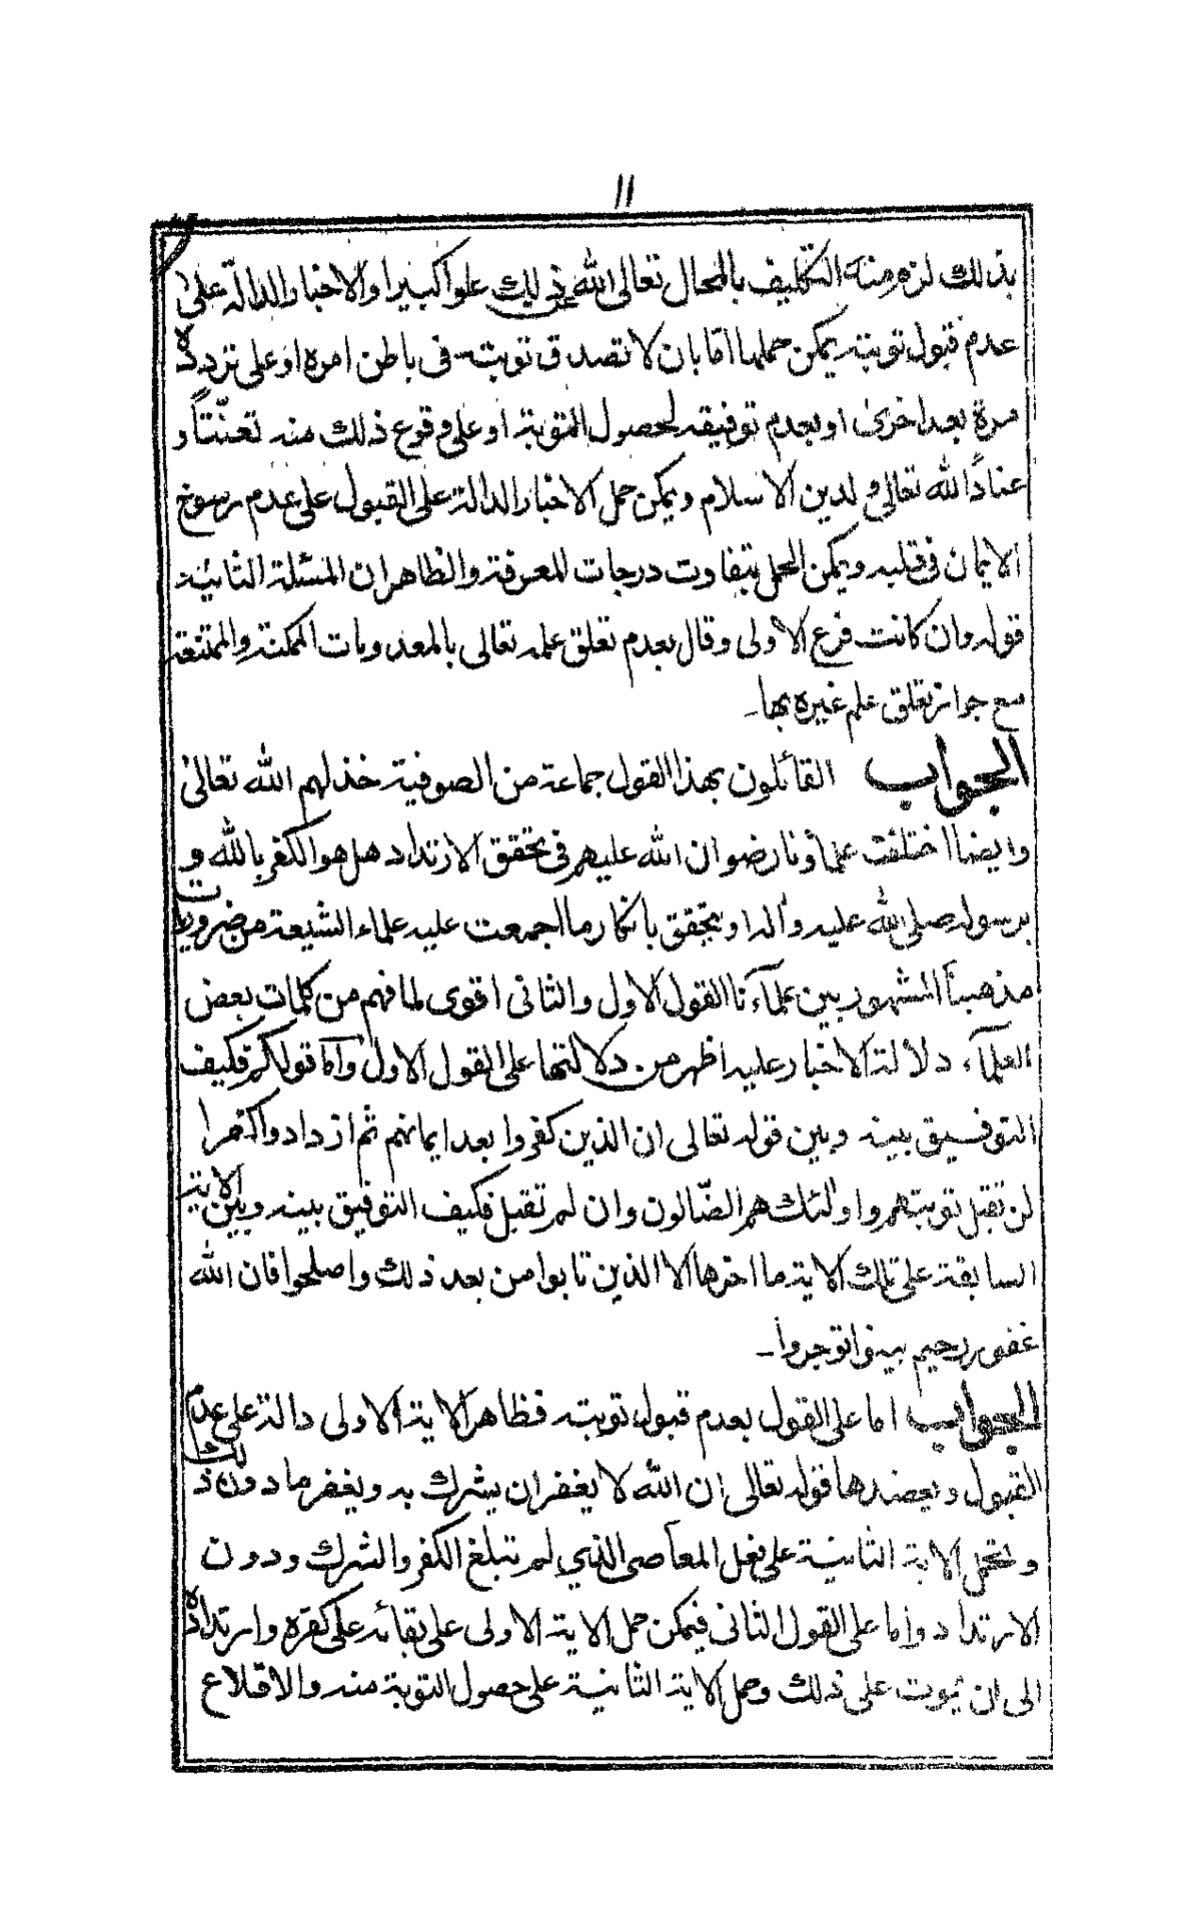 ۱۱
بذلك لزم منه التكليف بالمحال تعالى الله عن ذلك علوا كبيرا والاخبار الدالة على
عدم قبول توبته يمكن حملها اما بان لا تصدق توبته فى باطن امره او على تردده
مرة بعد اخرى او بعدم توفيقه لحصول التوبة او على وقوع ذلك منه تعنّتاً و
عناداً لله تعالى و لدين الاسلام ويمكن حمل الاخبار الدالة على القبول على عدم رسوخ
الايمان فى قلبه ويمكن الحمل بتفاوت درجات المعرفة والظاهر ان المسئلة الثانية
قوله وان كانت فرع الاولى وقال بعدم تعلق علمه تعالى بالمعدومات الممكنة والممتنعة
مع جواز تعلق علم غيره بها۔
الجواب القائلون بهذا القول جماعة من الصوفية خذلهم الله تعالى
وايضا اختلفت علماؤنا رضوان الله عليهم فى تحقق الارتداد هل هو الكفر بالله و
برسوله صلى الله عليه وآله او يتحقق بانكار ما اجمعت عليه علماء الشيعة من ضروريات
مذهبنا المشهور بين علمآءنا القول الاول والثانى اقوى لما فهم من كلمات بعض
العلمآء دلالة الاخبار عليه اظهر من دلالتها على القول الاول وآما قولكم فكيف
التوفيق بينه وبين قوله تعالى ان الذين كفروا بعد ايمانهم ثم ازدادوا كفرا
لن تقبل توبتهم واولئك هم الضّالون وان لم تقبل فكيف التوفيق بينه وبين الاية
السابقة على تلك الاية ما اخرها الا الذين تابوا من بعد ذلك واصلحوا فان الله
غفور رحيم بينوا توجروا۔
الجواب اما على القول بعدم قبول توبته فظاهر الاية الاولى دالة على عدم
القبول ويعضدها قوله تعالى ان الله لا يغفر ان يشرك به ويغفر ما دون ذلك
وتحمل الاية الثانية على فعل المعاصى الذي لم تبلغ الكفر والشرك ودون
الارتداد واما على القول الثانى فيمكن حمل الاية الاولى على بقائه على كفره وارتداده
الى ان يموت على ذلك وحمل الاية الثانية على حصول التوبة منه والاقلاع